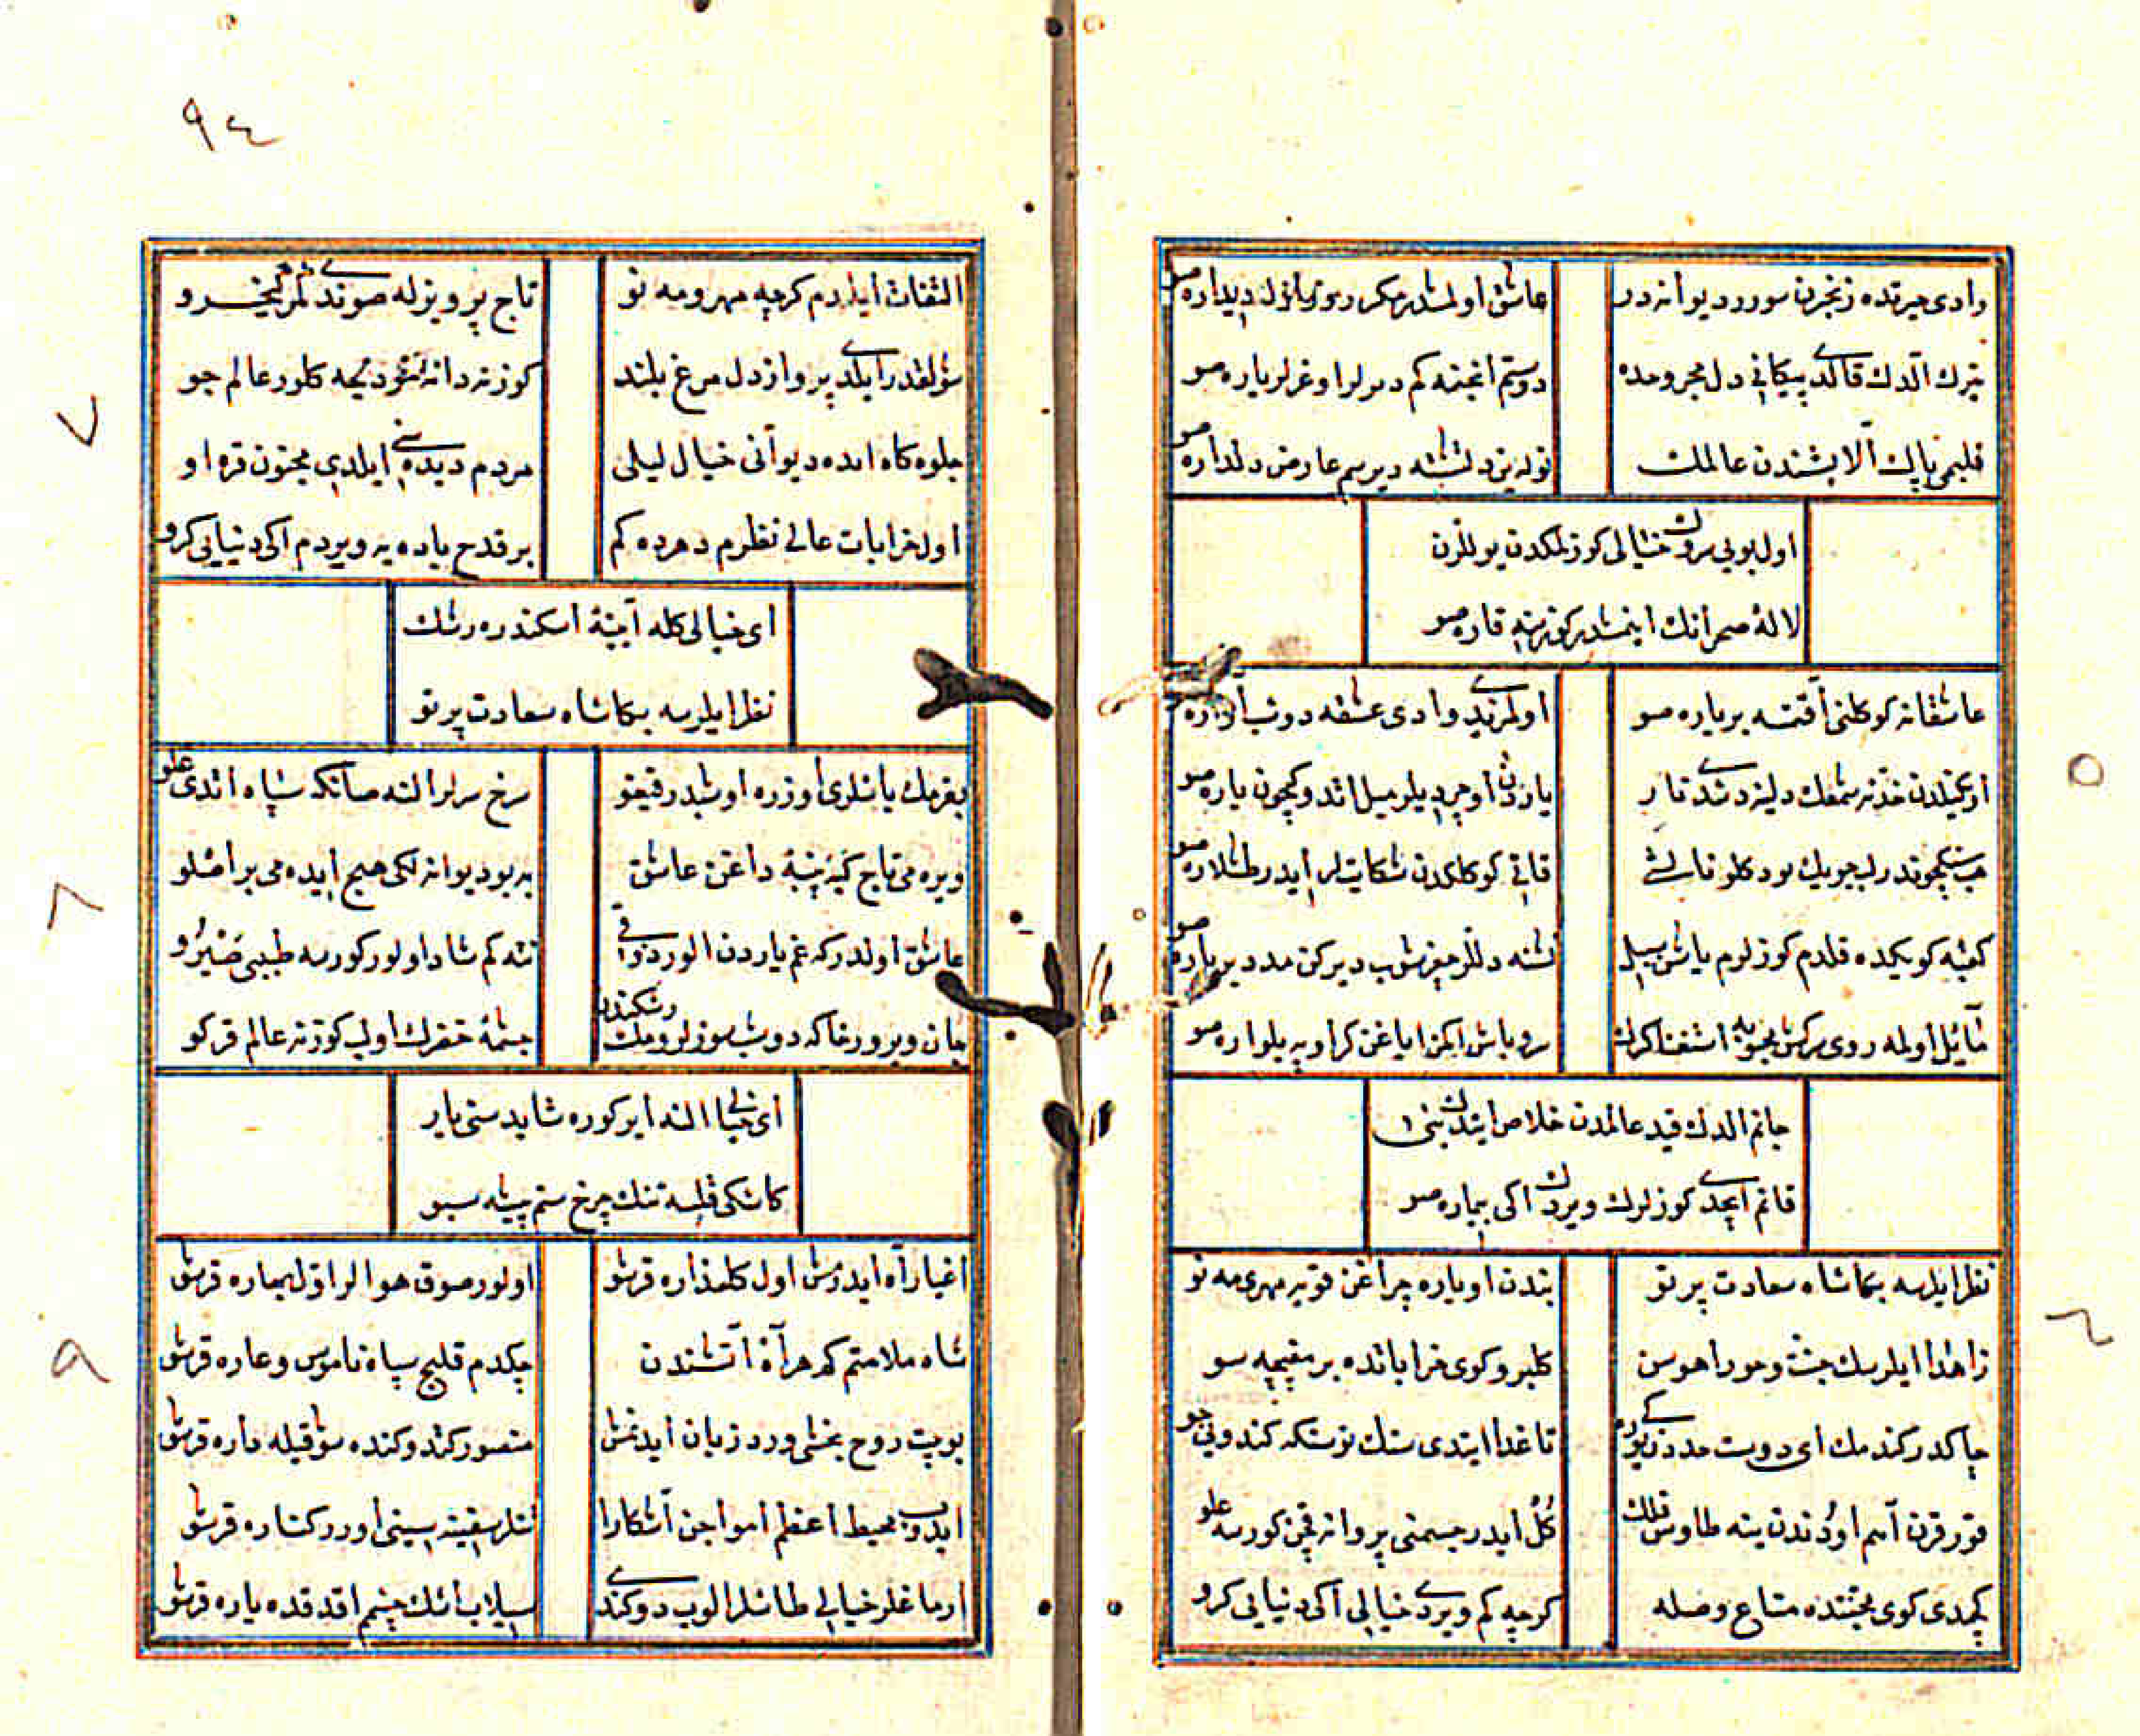 وادی حیرتده زنجرن سورر دیوانه در
عاشق اولمشدر مکر دیدارە صو
تیرك الدك قالدی پیکانی دل مجروحده
دوستم انجنه کم دیرلر اوغرلر یاره صو
قلبمی پاك آلایشندن عالمك
نوله یزد تشنه دیرسم عارض دلداره صو
اول بویی سروك خیالی کوزلمکدن یوللرن
لالهٔ صحرانك اینمشدر کوزینه قاره صو
عاشقانه کوکلنی آقتسه بر یاره صو
اولمزیدی وادی عشقه دوشب آواره صو
یاردن اوچردیلر میل اتدوکیچون یاره صو
قاتی کوکلکدن شکایتلر ایدر طاشلاره صو
کعبه کویکده قلدم کوزلرم یاشن سبیل
تشنه دللر چغرشوب دیرکن مدد بر پاره صو
مائل اولمه روی سرکش محبوبه استغنا کرك
سرو باش اکمز ایاغن کر اوپه یلواره صو
جانم الدك قید عالمدن خلاص ایتدك بنی
قانم ایچدی کوزلرك ویردك ایکی بیماره صو
نظر ایلرسه بکا شاه سعادت پرتو
بندن اویاره چراغن قویه مهری مه نو
زاهدا ایلرسك جنت و حورا هوسن
کلبرو کوی خراباتده بر مغبچه سو
چاکدر کندمك ای دوست مددن یوری
تا غدا ایتدی سنك نوسنکه کندونی جو
قورقرن آهم اودندن ینه طاوس فلك
کل ایدر جسمنی پروانه قچن کورسه علو
کچمدی کوی محبتده متاع وصله
کرچه کم ویردی خیالی ایکی دنیایی کرو
٦
٩٤
التفات ایلردم کرچه مهر و مه نو
تاج پرویزله صوندیلر کیخسرو
شولقدر ایلدی پرواز دل مرغ بلند
کوزنه دانهٔ خود نجه کلور عالم جو
جلوه کاه ایده دیو آنی خیال لیلی
مردم دیده سنی ایلدی مجنون قره او
اول خرابات عالی نظرم دهرده کم
بر قدح باده یه ویردم ایکی دنیایی کرو
ای خیالی کله آیینهٔ اسکندره رشك
نظر ایلرسه بکا شاه سعادت پرتو
بغرمك باشلری اوزره اوشدر قیغو
سرخ سرلر النه صانکه سپاه اتدی علو
ویره می تاج کیه پنبهٔ داغن عاشق
به بو دیوانه لکی هیچ ایده می بر اصلو
عاشق اولدر که غم یاردن الور ذوقی
نته کم شاد اولور کورسه طبیبی صیرو
جان ویرور خاکه دوشب سوزلرومك رشکندن
چشمهٔ خضرك اولب کوزنه عالم قرکو
ای خیالی النه ایر کوره شاید سنی یار
کاشکی قلسه تنك چرخ ستم پیشه سبو
اغیار آه ایدرمش اول کلعذاره قرشو
اولور صوق هوالر اول بهاره قرشو
شاه ملامتم کم هر آه آتشندن
چکدم قلیج سپاه ناموس و عاره قرشو
بو بیت روح بخشی ورد زبان ایدنمش
منصور کندو کنده شوقیله داره قرشو
ایدوب محیط اعظم امواجن آشکارا
تنلر سفینه سینی اورر کناره قرشو
ارماغلر خیالی طاشلر الوب دوکندی
سیلاب اشك چشمم اقدقده یاره قرشو
٧
٨
٩